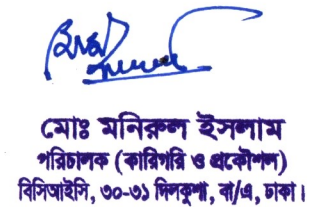 মোঃ মনিরুল ইসলাম
পরিচালক (কারিগরি ও প্রকৌশল)
বিসিআইসি, ৩০-৩১ দিলকুশা, বা/এ, ঢাকা।